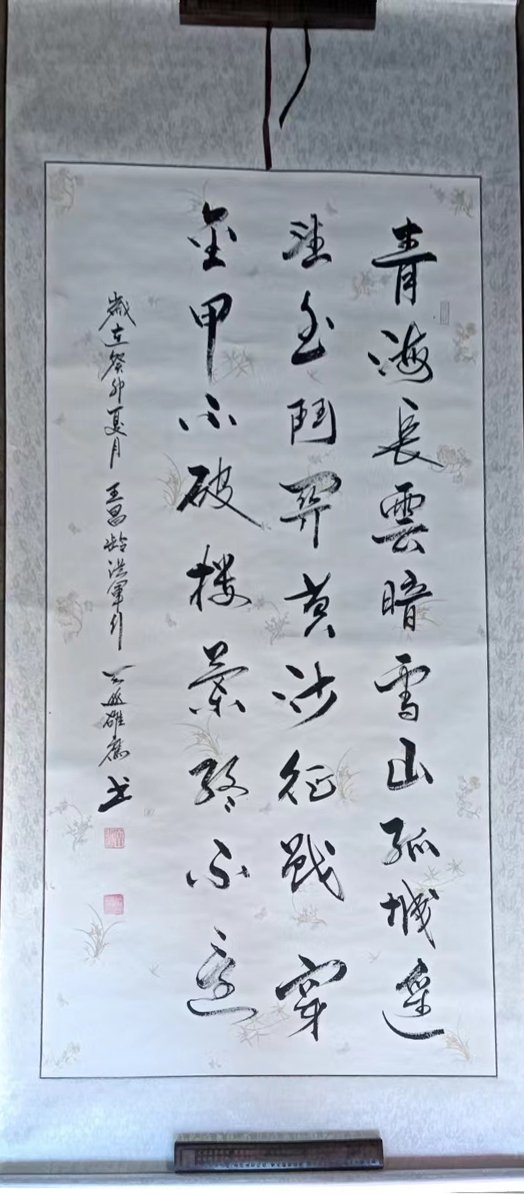 青海長雲暗雪山孤城遥
望玉門関黄沙征戰穿
金甲不破楼蘭終不還
歲在癸卯夏月 王昌龄從軍行 书